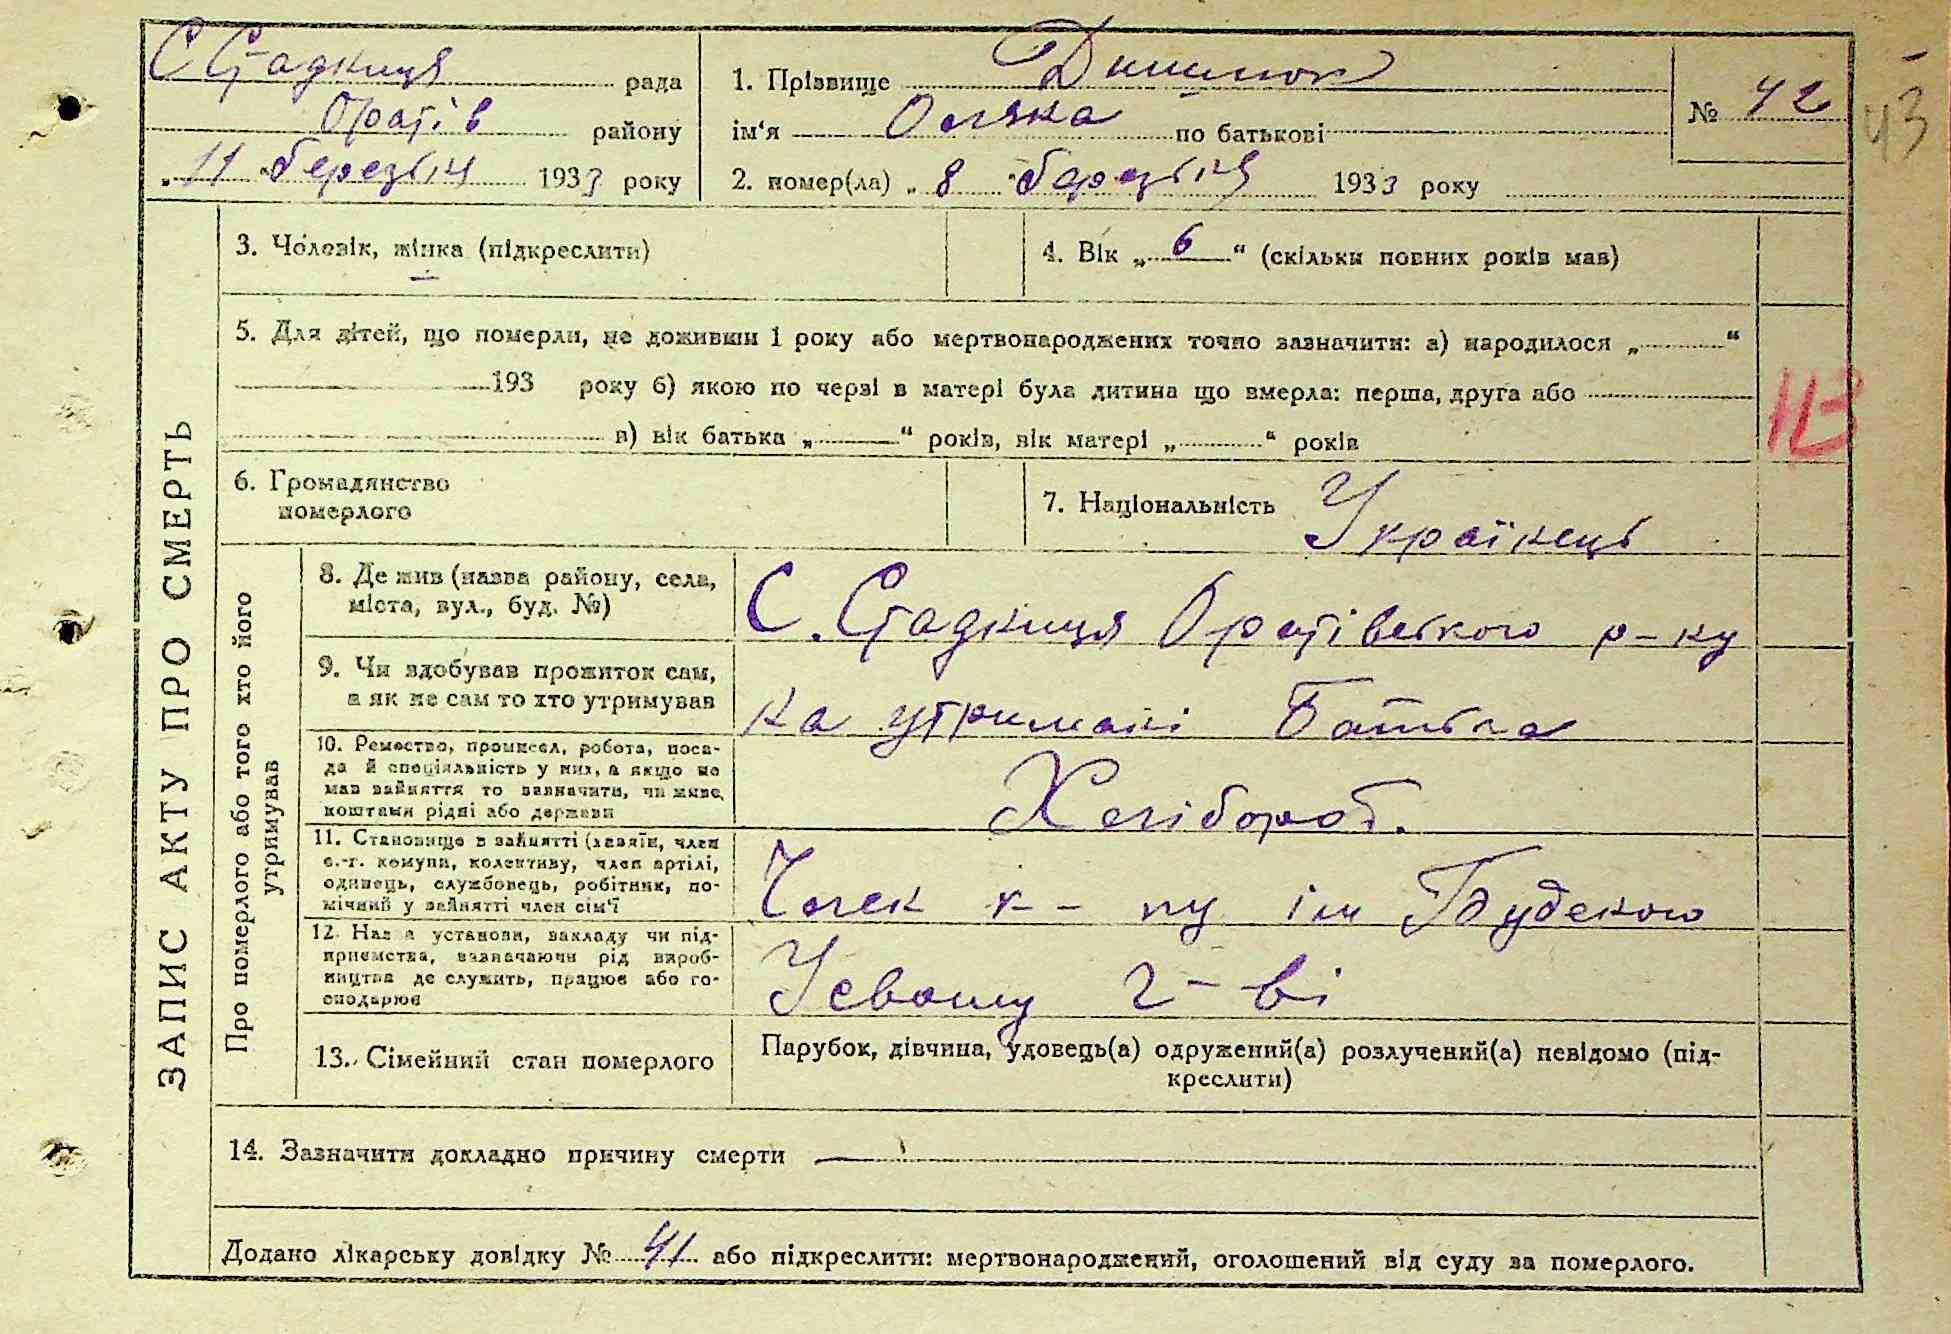 С Стадниця рада
Оратів району
„ 11 " березня 1933 року
1. Прізвище Дишлюк
ім'я Оляна по батькові
2. помер(ла) „ 8 " березня 1933 року
№ 42
43
ЗАПИС АКТУ ПРО СМЕРТЬ
3. Чоловік, жінка (підкреслити)
4. Вік „ 6 “ (скільки повних років мав)
5. Для дітей, що померли, не доживши 1 року або мертвонароджених точно зазначити: а) народилося „ “
193 року б) якою по черзі в матері була дитина що вмерла: перша, друга або
в) вік батька „ “ років, вік матері „ “ років
113
6. Громадянство
померлого
7. Національність Українець
Про померлого або того хто його
утримував
8. Де жив (назва району, села,
міста, вул., буд. №)
С. Стадниця Оратівського р-ну
9. Чи здобував прожиток сам,
а як не сам то хто утримував
На утримані Батька
10. Ремество, промисел, робота, поса-
да й спеціяльність у них, а якщо не
мав зайняття то зазначити, чи живе
коштами рідні або держави
Хлібороб.
11. Становище в зайнятті (хазяїн, член
с.-г. комуни, колективу, член артілі,
одинець, службовець, робітник, по-
мічний у зайнятті член сім'ї
Член к-пу ім
12. Назва установи, закладу чи під-
приємства, зазначаючи рід вироб-
ництва де служить, працює або го-
сподарює
У свому г-ві
13. Сімейний стан померлого
Парубок, дівчина, удовець(а) одружений(а) розлучений(а) невідомо (під-
креслити)
14. Зазначити докладно причину смерти
Додано лікарську довідку № 41 або підкреслити: мертвонароджений, оголошений від суду за померлого.